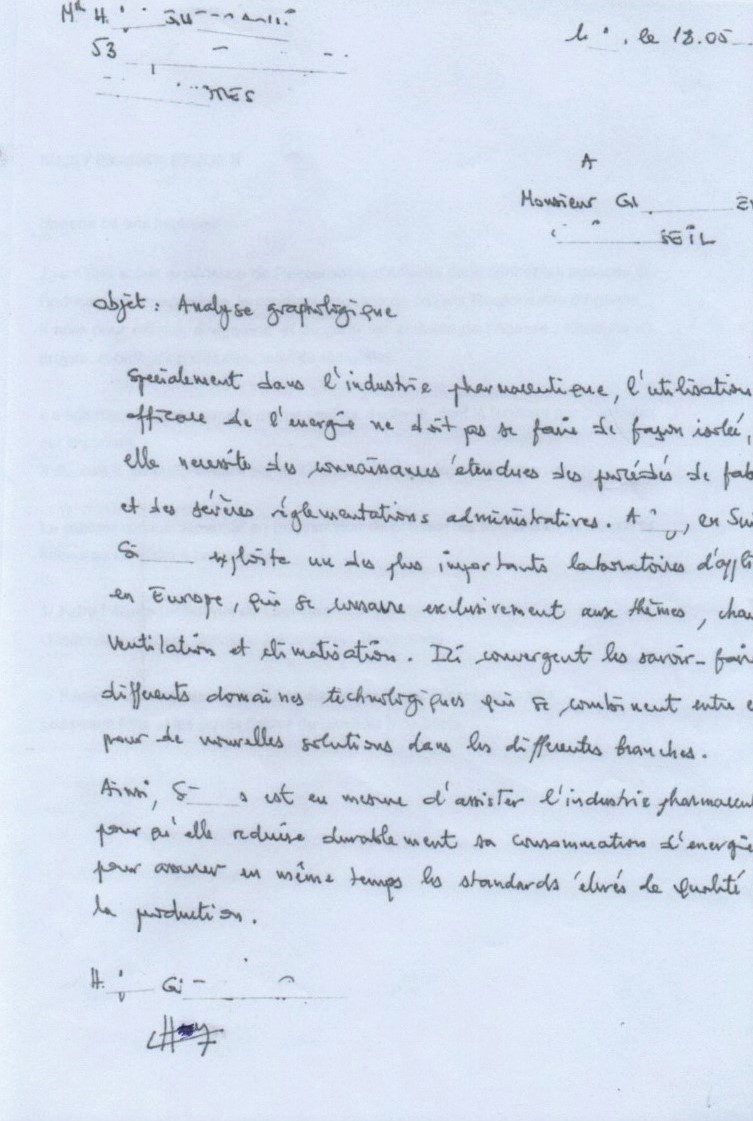 Mr H.
53
le 18.05
MES
A
Monsieur Gi
SEIL
Objet : Analyse graphologique
Spécialement dans l'industrie pharmaceutique, l'utilisation
efficace de l'energie ne doit pas se faire de façon isolée,
elle necessite des connaissances étendues des procédés de fab
et des sévères réglementations administratives. A , en Sui
S exploite un des plus importants laboratoires d'appli
en Europe, qui se consacre exclusivement aux thèmes, chau
ventilation et climatisation. Ici convergent les savoir-fair
différents domaines technologiques qui se combinent entre e
pour de nouvelles solutions dans les différentes branches.
Ainsi, S s est en mesure d'assister l'industrie pharmaceut
pour qu'elle réduise durablement sa consommation d'energie
pour assurer en même temps les standards élevés de qualité
la production.
H. Gi